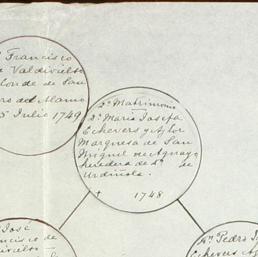 Francisco
Valdivielso
Conde de San
del Alamo
Julio 1749
2º Matrimonio
Dª Maria Josefa
Echevers y
Marquesa de San
Miguel de Aguayo
heredera de Dª de
Urdiñola.
1748
José
Francisco de
Dn Pedro
Echevers